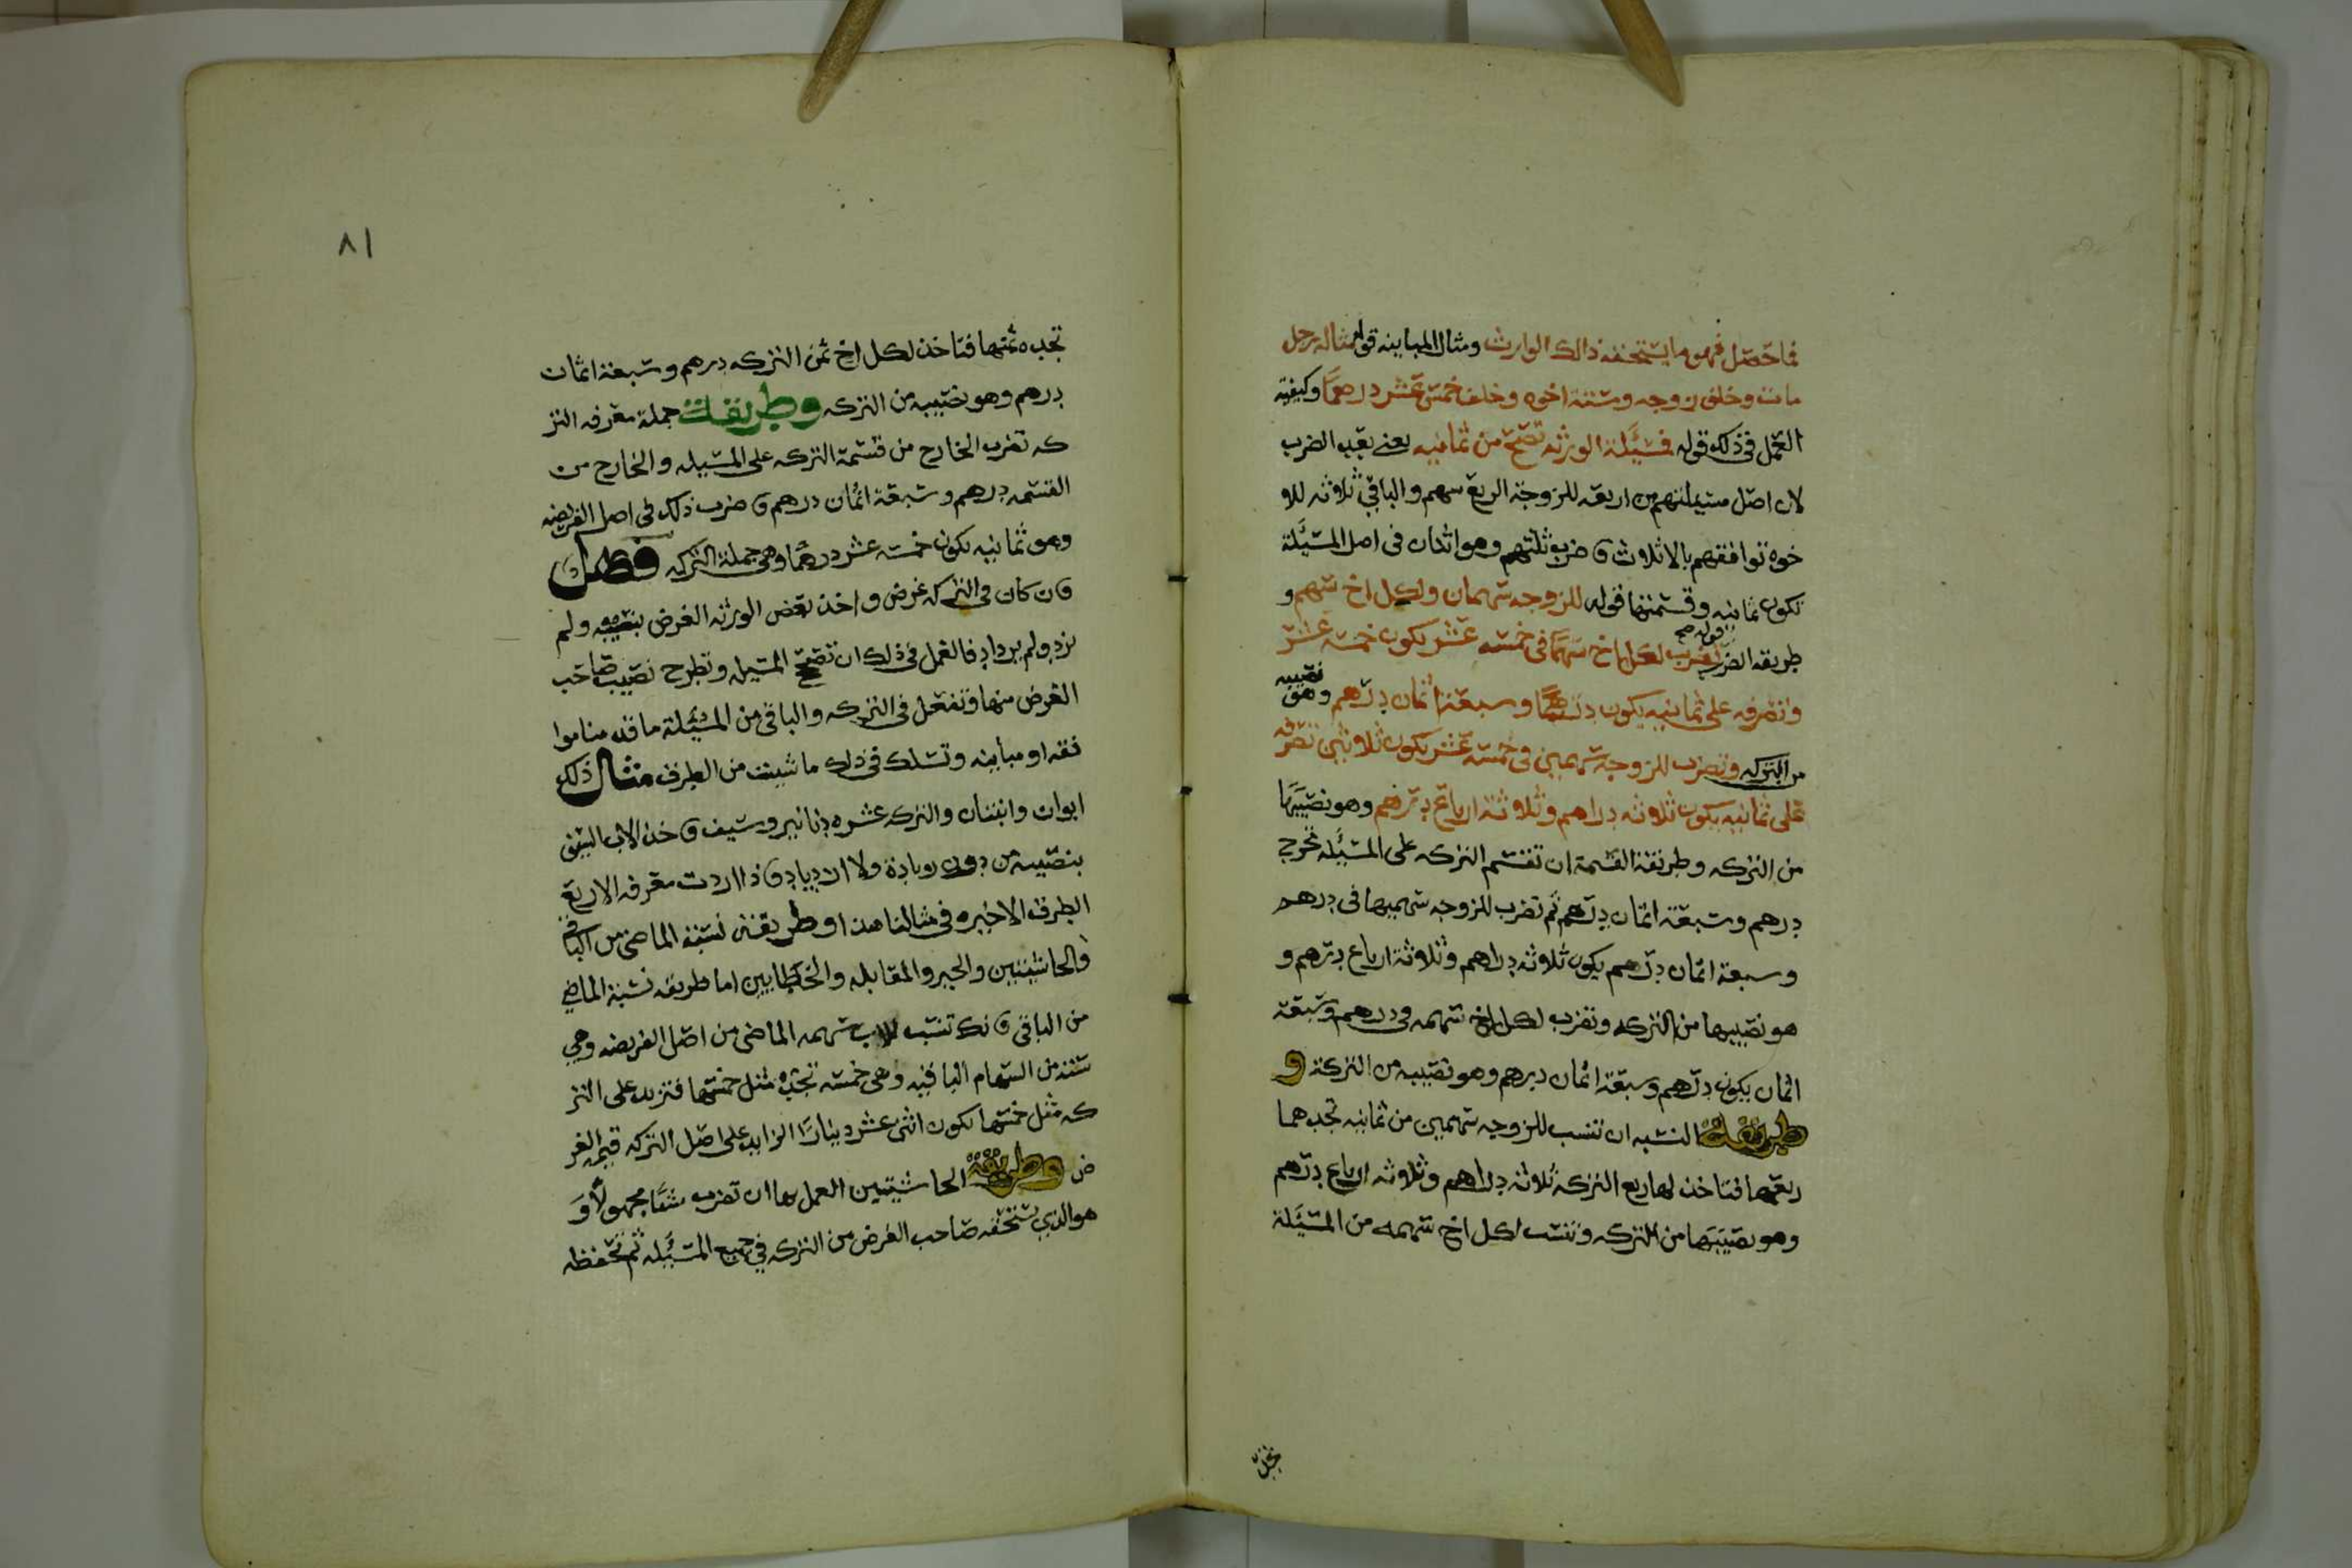 فما حصل فهو ما يستحقه ذالك الوارث ومثال المباينه قوله مثاله رجل
مات وخلف زوجه وستة اخوه وخلف خمسة عشر درهمًا وكيفية
العمل في ذلك قوله فمسئلة الورثه تصح من ثمانيه يعني بعد الضرب
لان اصل مسئلتهم من اربعه للزوجة الربع سهم والباقي ثلاثه للا
خوه توافقهم بالاثلاث فاضرب ثلثهم وهو اثنان في اصل المسئلة
تكون ثمانيه وقسمتها قوله للزوجه سهمان ولكل اخ سهم و
طريقه الضرب قوله صح تضرب لكل اخ سهمًا في خمسه عشر يكون خمسه عشر
وتصرفه على ثمانيه يكون درهمًا وسبعة اثمان درهم وهو نصيبه
من التركه وتضرب للزوجة سهمين في خمسه عشر يكون ثلاثين تصرفه
على ثمانيه يكون ثلاثه دراهم وثلاثة ارباع درهم وهو نصيبها
من التركه وطريقة القسمة ان تقسم التركه على المسئله تخرج
درهم وسبعة اثمان درهم ثم تضرب للزوجه سهميها في درهم
وسبعة اثمان درهم يكون ثلاثه دراهم وثلاثة ارباع درهم و
هو نصيبها من التركه وتضرب لكل اخ سهمه في درهم وسبعة
اثمان يكون درهم وسبعة اثمان درهم وهو نصيبه من التركة و
طريقة النسبه ان تنسب للزوجه سهمين من ثمانيه تجدهما
ربعها فتاخذ لها ربع التركه ثلاثه دراهم وثلاثه ارباع درهم
وهو نصيبها من التركه وتنسب لكل اخ سهمه من المسئلة
تجده
٨١
تجده ثمنها فتاخذ لكل اخ ثمن التركه درهم وسبعة اثمان
درهم وهو نصيبه من التركه وطريقة جملة معرفه التر
كه تضرب الخارج من قسمة التركه على المسئله والخارج من
القسمه درهم وسبعة اثمان درهم فاضرب ذلك في اصل الفريضه
وهو ثمانيه يكون خمسه عشر درهمًا وهي جملة التركه فصل
فان كان في التركه عرض واخذ بعض الورثه العرض بنصيبه ولم
يزد ولم يرداد فالعمل في ذلك ان تصح المسئله وتطرح نصيب صاحب
العرض منها وتفعل في التركه والباقي من المسئلة ما قدمنا موا
فقه او مباينه وتسلك في ذلك ما شيت من الطرق مثال ذلك
ابوان وابنتان والتركه عشره دنانير وسيف فاخذ الاب السيف
بنصيبه من دون زيادة ولا ازدياد فاذا اردت معرفه الاربع
الطرق الاخيره في مثالنا هذا وطريقة نسبة الماضي من الباقي
والحاشيتين والجبر والمقابله والخطايين اما طريقه نسبة الماضي
من الباقي فانك تنسب للاب سهمه الماضي من اصل الفريضه وهي
ستة من السهام الباقيه وهي خمسه تجده مثل خمسها فتزيد على التر
كه مثل خمسها يكون اثني عشر دينارًا الزايد على اصل التركه قيمة العر
ض وطريقة الحاشيتين العمل بها ان تضرب شيًا مجهولًا و
هو الذي يستحقه صاحب العرض من التركه في جميع المسئله ثم تحفظه